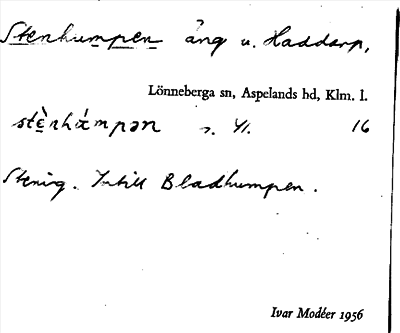 Stenhumpen äng u. Haddarp,
Lönneberga sn, Aspelands hd, Klm. l.
16
Stenig. Intill Bladhumpen.
Ivar Modéer 1956